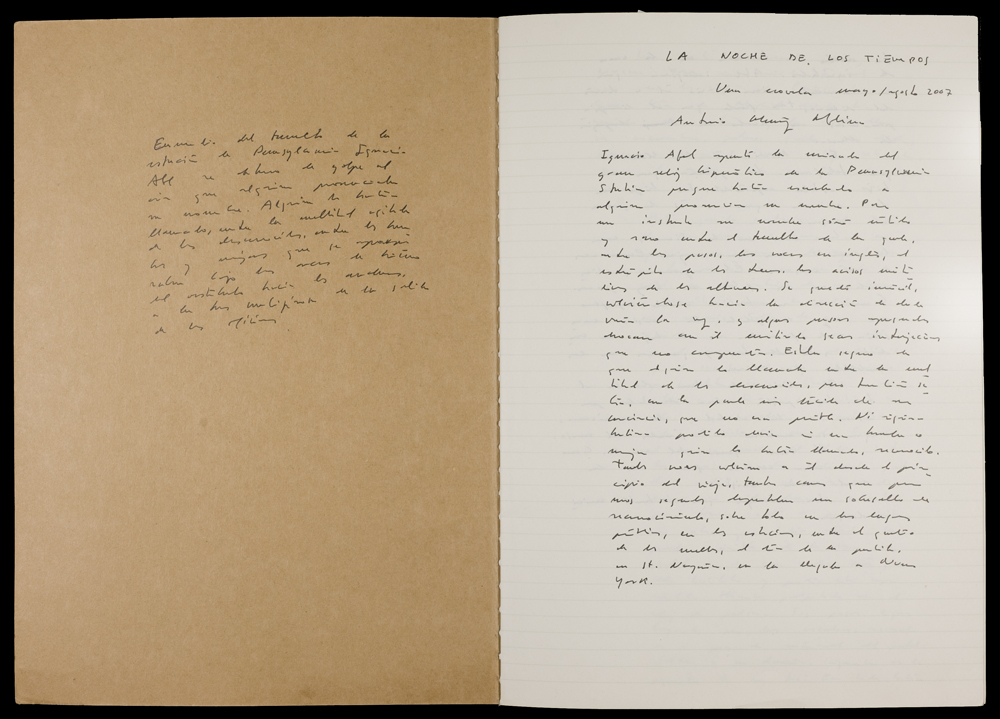 En medio del tumulto de la
estación de Pennsylvania Ignacio
Abel se detuvo de golpe al
oír que alguien pronunciaba
su nombre. Alguien lo había
llamado, entre la multitud agitada
de los desconocidos, entre los
y abrigos que se
bajo las voces de
el hacia los andenes
a las de la salida
de los
LA NOCHE DE LOS TIEMPOS
mayo/agosto 2007
Antonio Muñoz Molina
Ignacio Abel apartó la mirada del
gran reloj de la Pennsylvania
Station porque había escuchado a
alguien pronunciar su nombre. Por
un instante su nombre sonó nítido
y raro entre el tumulto de la gente,
entre los pasos, las voces en inglés, el
estrépito de los trenes, los avisos
de los altavoces. Se quedó inmóvil,
volviéndose hacia la dirección de donde
venía la voz, y algunas personas apresuradas
chocaron con él emitiendo secas interjecciones
que no comprendía. Estaba seguro de
que alguien lo llamaba entre la mul
titud de los desconocidos, pero también sa
bía, en la parte más lúcida de su
conciencia, que no era posible. Ni siquiera
habría podido decir si era hombre o
mujer quien lo había llamado,
Tantas voces volvían a él desde el prin
cipio del viaje, tantas caras que por
unos segundos despertaban un sobresalto de
reconocimiento, sobre todo en los lugares
públicos, en las estaciones, entre el gentío
de los muelles, el día de la partida,
en St. Nazaire, en la llegada a Nueva
York.